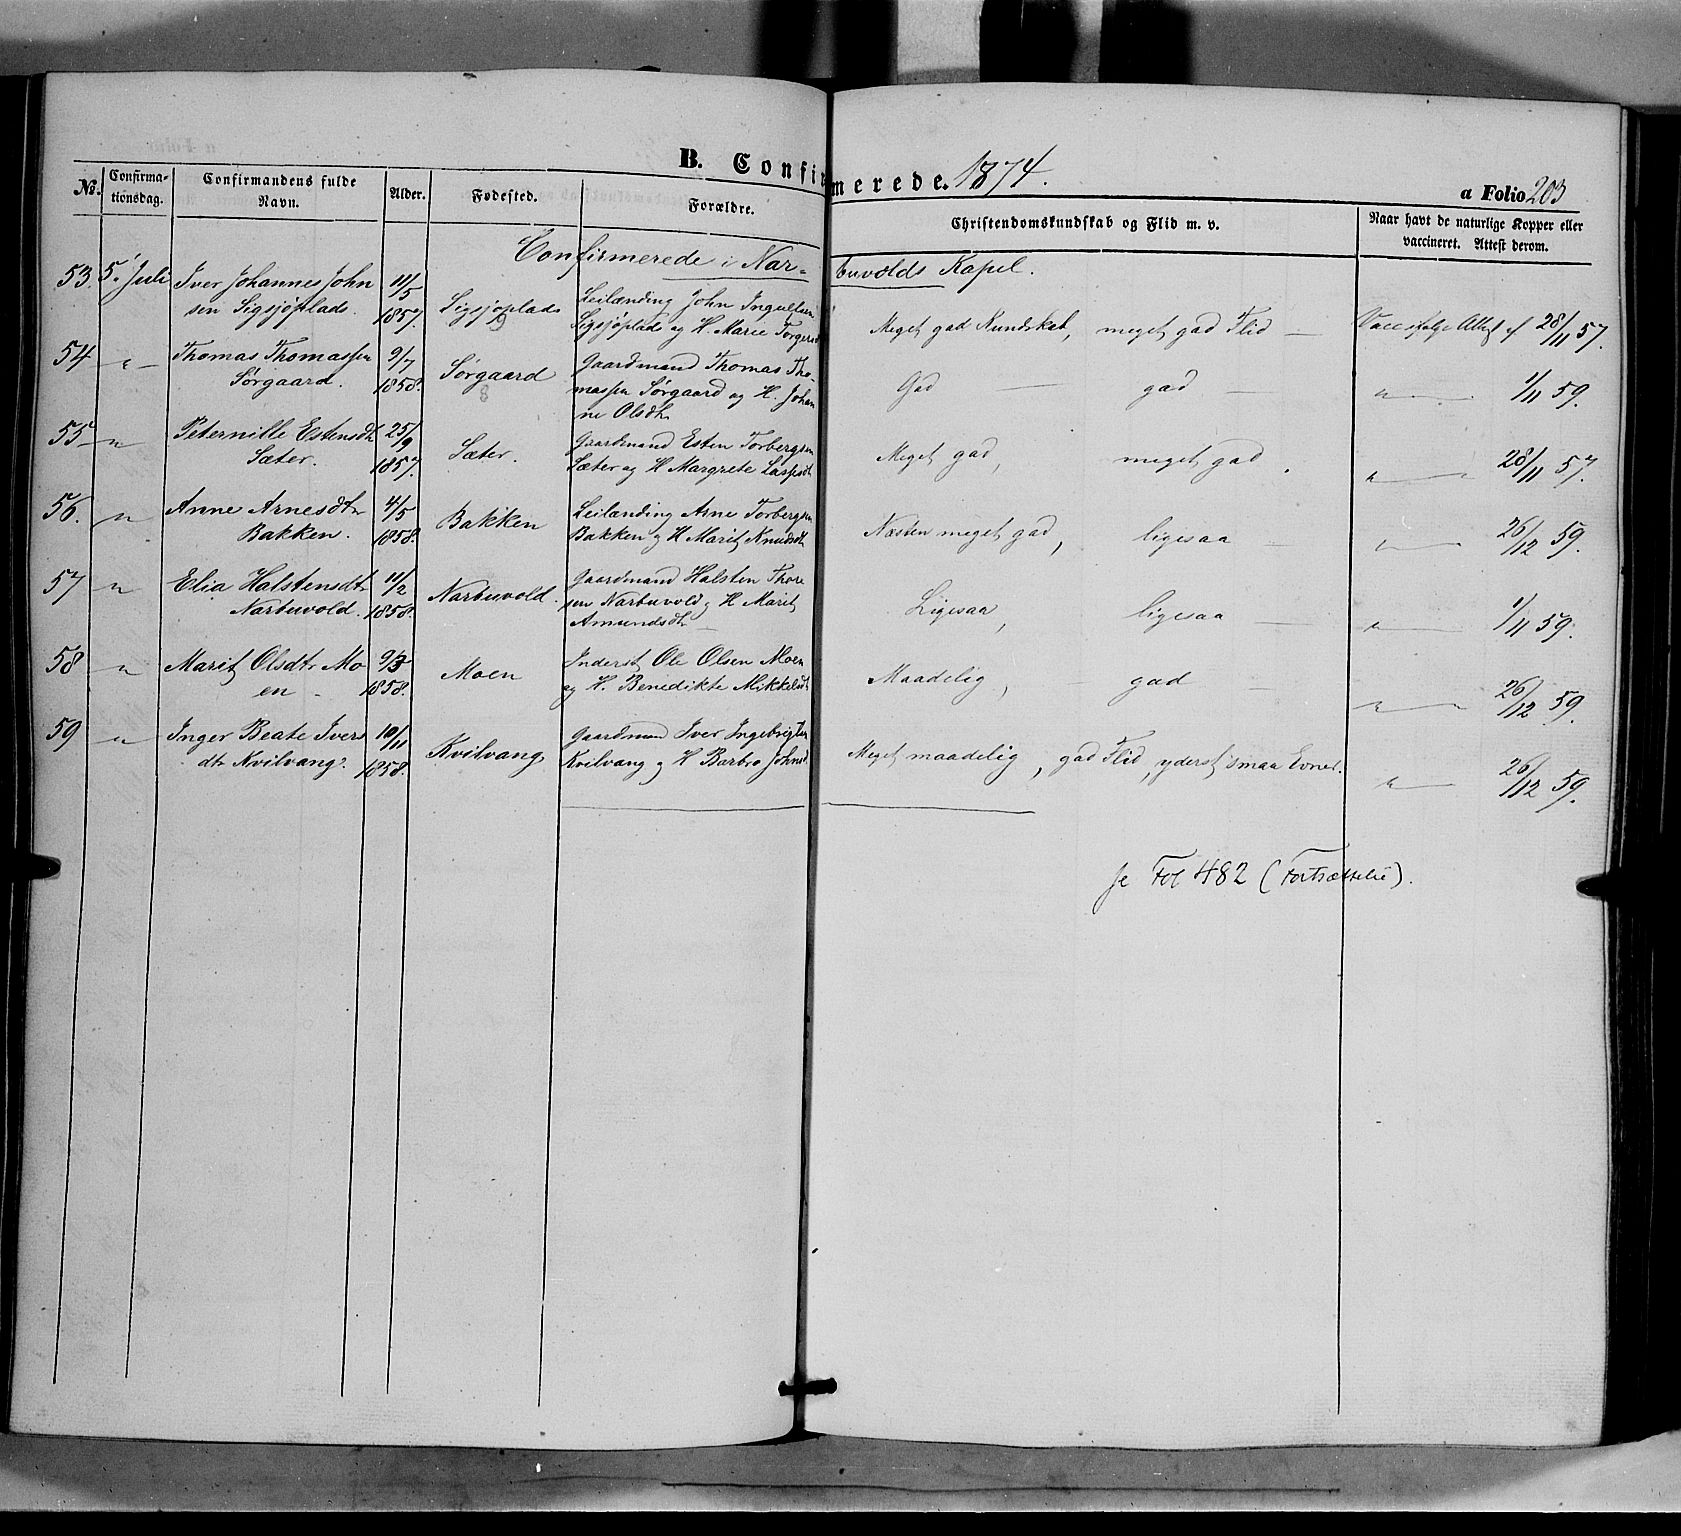 B. Confirmerede. 1874.
a Folio 203
No.
Confirma-
tionsdag.
Confirmandens fulde
Navn.
Alder.
Fødested.
Forældre.
Christendomskundskab og Flid m. v.
Naar havt de naturlige Kopper eller
vaccineret. Attest derom.
Confirmerede i Nar-buvolds Kapel.
53. 5. Juli Iver Johannes John 11/5 Leilænding John Ingvelsen
sen Sigsjøplads. 1857. Sigsjøplads Sigsjøplads og H. Marie Torgersd Meget god Kundskab, meget god Flid — Vacc. ifølge Attest af 28/11 57.
54 " Thomas Thomassen 9/7 Gaardmand Thomas Tho-
Sørgaard. 1858. Sørgaard massen Sørgaard og H. Johan God — god — " 1/11 59.
ne Olsdtr
55 " Peternille Estensdtr 25/9 Gaardmand Esten Torbergsen
Sæter. 1857. Sæter. Sæter og H. Margrete Caspersdt Meget god, meget god. " 28/11 57.
56. " Anne Arnesdtr 4/5 Leilænding Arne Torbergsen
Bakken. 1858. Bakken Bakken og H. Marit Knudsdtr Næsten meget god, ligesaa — " 26/12 59.
57 " Elia Halstensdtr 11/2 Gaardmand Halsten Thore
Narbuvold. 1858. Narbuvold. sen Narbuvold og H. Marit Ligesaa, ligesaa — " 1/11 59.
Amundsdtr —
58 " Marit Olsdtr Mo 9/3 Inderst Ole Olsen Moen
en — 1858. Moen og H. Benedikte Mikkelsdt Maadelig, god — " 26/12 59.
59 " Inger Beate Ivers 10/11 Gaardmand Iver Ingebrigtsen
dtr Kvilvang. 1858. Kvilvang Kvilvang og H. Barbro Johnsd. Meget maadelig, god Flid, yderst smaa Evner. " 26/12 59.
se Fol 482 (Fortsættelse).